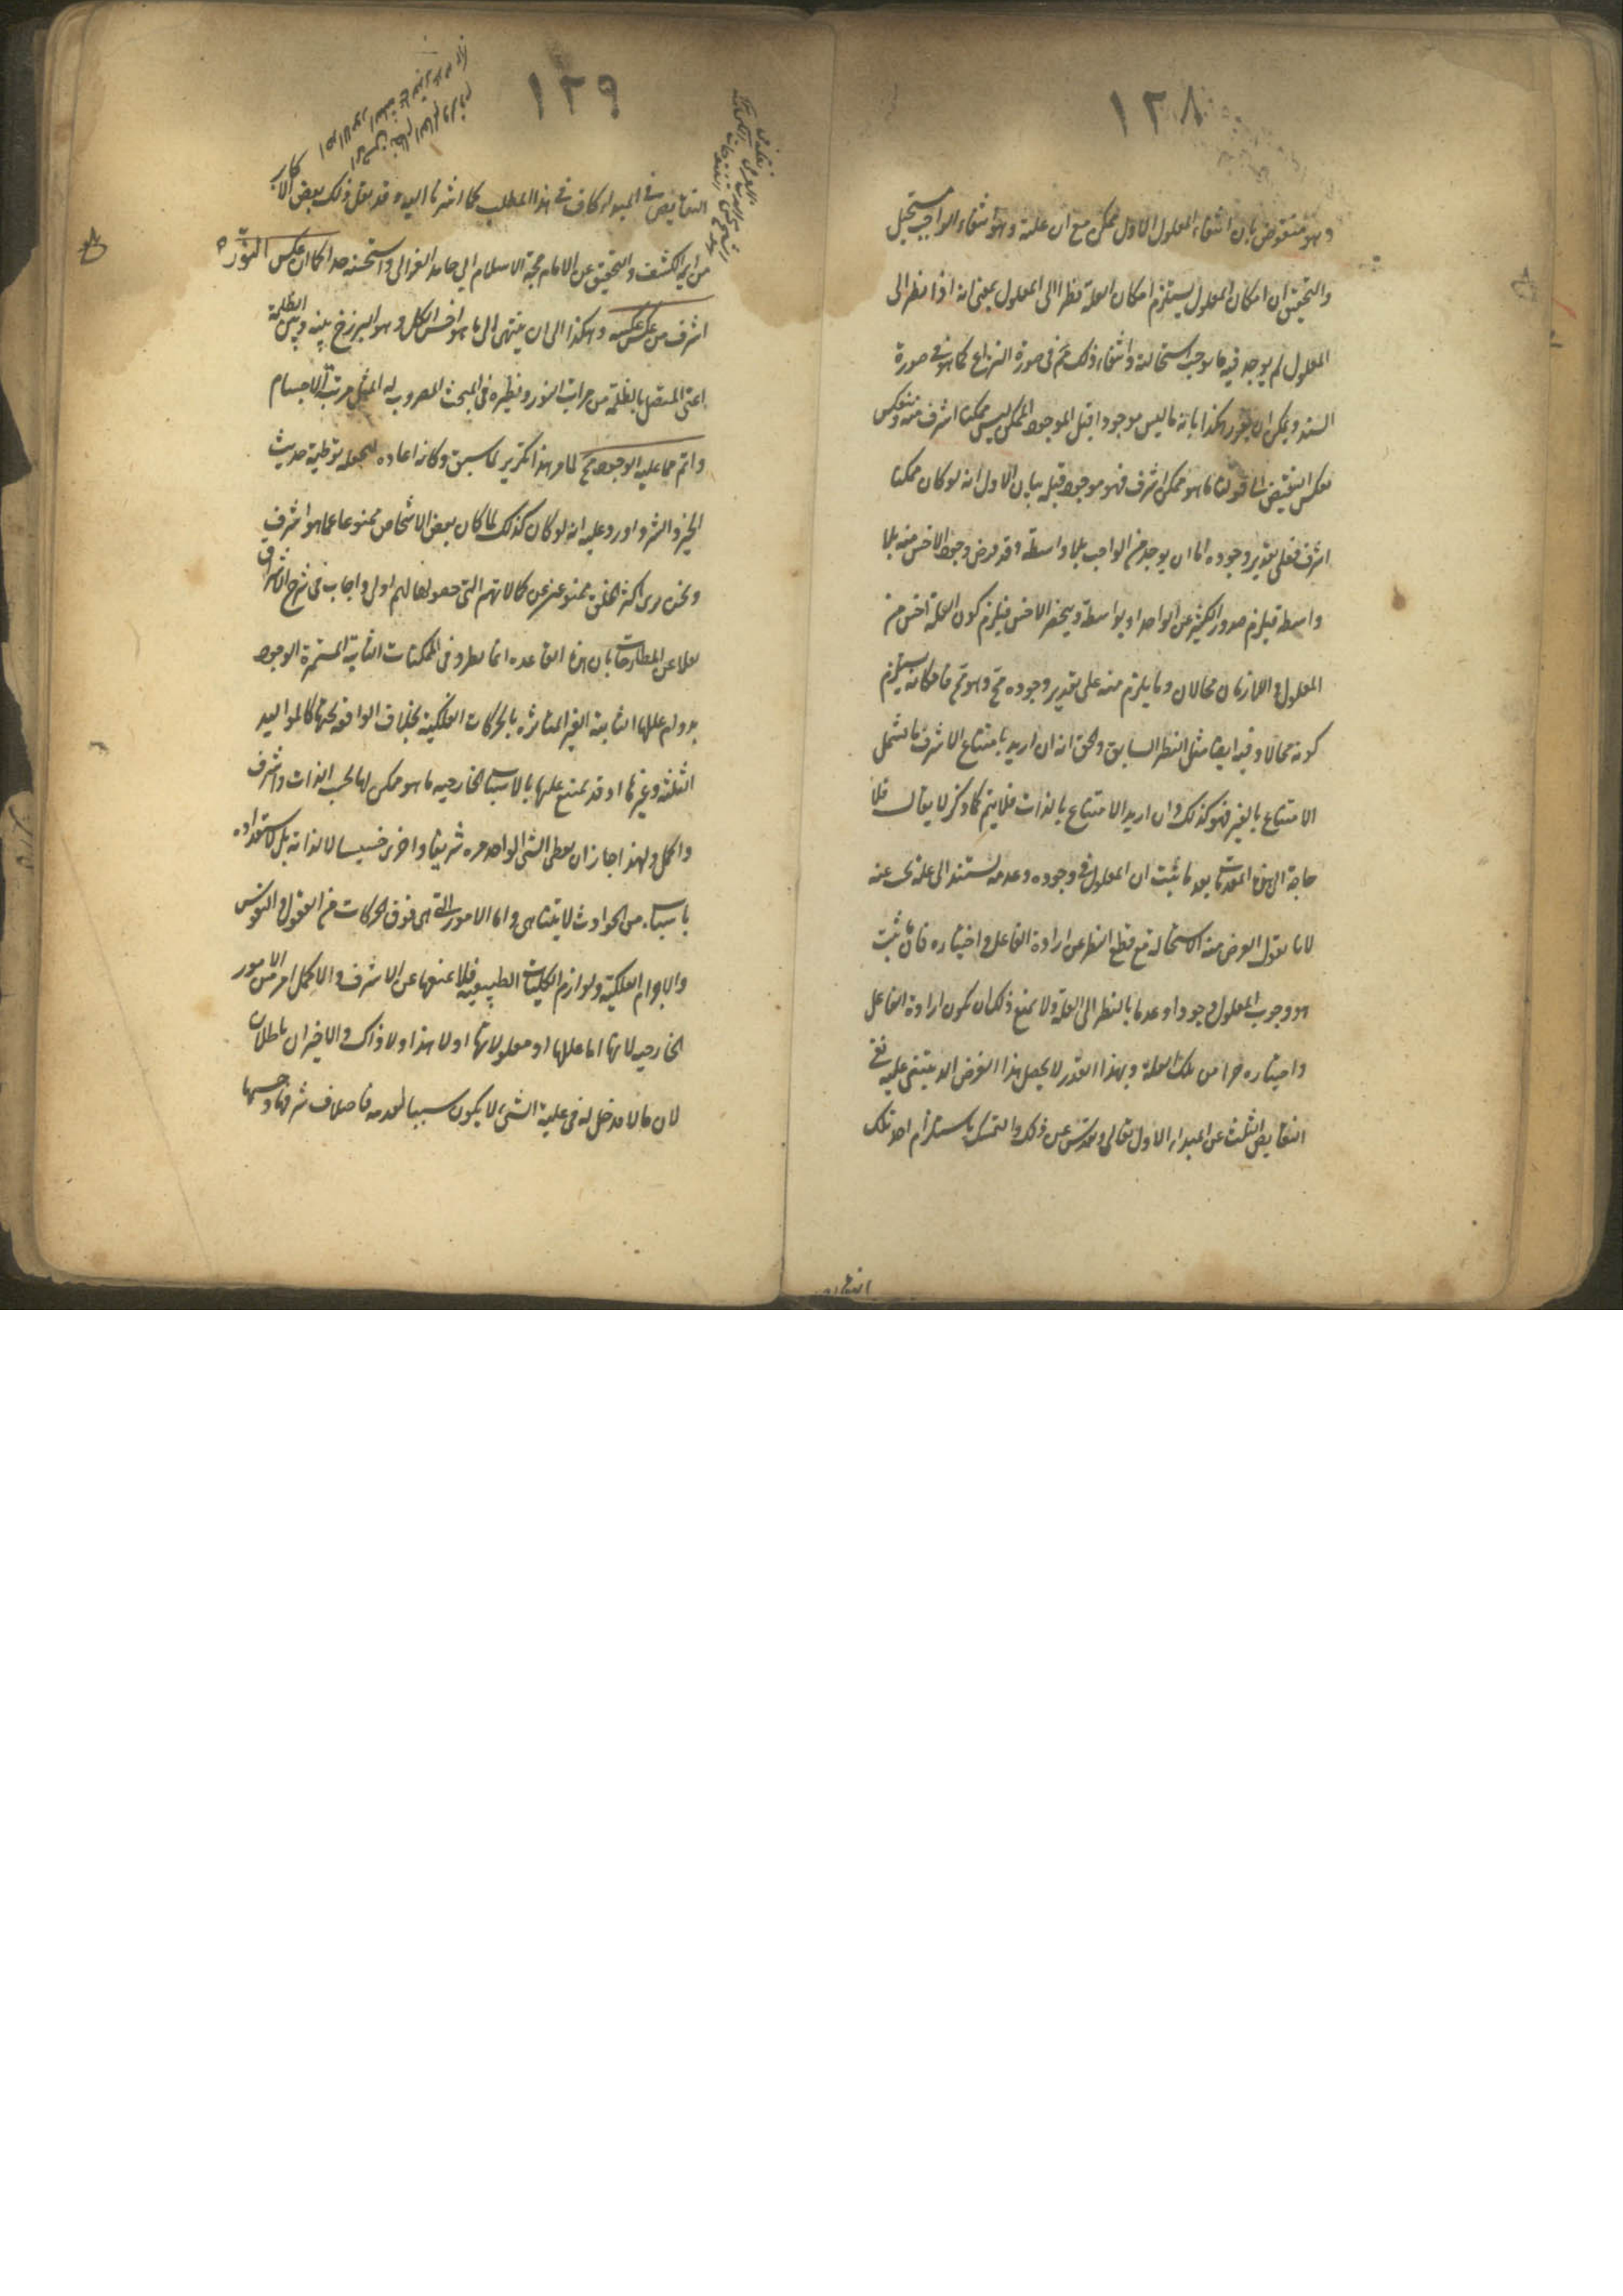 ١٢٨
وهو منقوض بان انتفاء المعلول الاول ممكن مع ان علته وهو انتفاء الواجب مستحيل
والتحقيق ان امكان المعلول يستلزم امكان العلة نظرا الى المعلول بمعنى انه اذا نظر الى
المعلول لم يوجد فيه ما يوجب استحالته وانتفاء ذلك مم فى صورة النزاع كما هو فى صورة
السند ويمكن ان يقرر هكذا بانه ما ليس موجودا قبل الموجود الممكن ليس ممكنا اشرف منه وينعكس
بعكس النقيض الى قولنا ما هو ممكن اشرف فهو موجود قبله بيان الاول انه لو كان ممكنا
اشرف فعلى تقدير وجوده اما ان يوجد من الواجب بلا واسطة وقد فرض وجود الاخس منه بلا
واسطة فيلزم صدور الكثير عن الواحد او بواسطة وينحصر الاخس فيلزم كون العلة اخس من
المعلول واللازمان محالان وما يلزم منه على تقدير وجوده مح وهو مح فامكانه يستلزم
كونه محالا وفيه ايضا مثل النظر السابق والحق انه ان اريد بامتناع الاشرف ما يشمل
الامتناع بالغير فهو كذلك وان اريد الامتناع بالذات فلا يتم كما ذكر لا يقال فلا
حاجة الى هذه المقدمات بعد ما ثبت ان المعلول فى وجوده وعدمه يستند الى علة عنه
لانا نقول الغرض منه الاستحالة مع قطع النظر عن ارادة الفاعل واختياره فان ما ثبت
هو وجوب المعلول وجودا وعدما بالنظر الى العلة ولا يمنع ذلك ان يكون ارادة الفاعل
واختياره جزأ من تلك العلة وبهذا القدر لا يحصل هذا الغرض الذى يبتنى عليه نفى
النقايص الثلث عن المبدإ الاول تعالى وتقدس عن ذلك والتمسك باستلزام احد تلك
النقايص
١٢٩
النقايص فى المبدإ كاف فى هذا المطلب كما اشرنا اليه وقد نقل ذلك بعض الاكابر
من ايمة الكشف والتحقيق عن الامام حجة الاسلام ابى حامد الغزالى واستحسنه جدا لكان عكس النور
اشرف من عكس عكسه وهكذا الى ان ينتهى الى ما هو اخس الكل وهو البرزخ بينه وبين الظلمة
اعنى المتصل بالظلمة من مراتب النور ونظيره فى المبحث المضروب له المثل مرتبة الاجسام
واتم مما عليه الوجود مح لما مر هذا تكرير لما سبق وكانه اعاده ليجعله توطية حديث
الخير والشر واورد عليه انه لو كان كذلك لما كان بعض الاشخاص ممنوعا عما هو اشرف
ونحن نرى اكثر الخلق ممنوعين عن كمالاتهم التى حصولها لهم اولى واجاب فى شرح الاشراق
نقلا عن المطارحات بان هذه القاعدة انما تطرد فى الممكنات الثابتة المستمرة الوجود
بدوام عللها الثابتة الغير المتاثرة بالحركات الفلكية بخلاف الواقعة تحتها كالمواليد
الثلثة وغيرها اذ قد يمتنع عليها بالاسباب الخارجية ما هو ممكن لها بحسب الذات واشرف
واكمل ولهذا جاز ان يعطى الشئ الواحد مرة شريفا واخرى خسيسا لا لذاته بل لاستعداده
باسباب من الحوادث لا يتناهى واما الامور التى هى فوق الحركات من العقول والنفوس
والاجرام الفلكية ولوازم الكليات الطبيعية فلا يمنعها عن الاشرف والاكمل امر من الامور
الخارجية لانها اما عللها او معلولاتها او لا هذا ولا ذاك والاخيران باطلان
لان ما لا مدخل له فى علية الشئ لا يكون سببا لعدمه فاختلاف شرفها وخستها